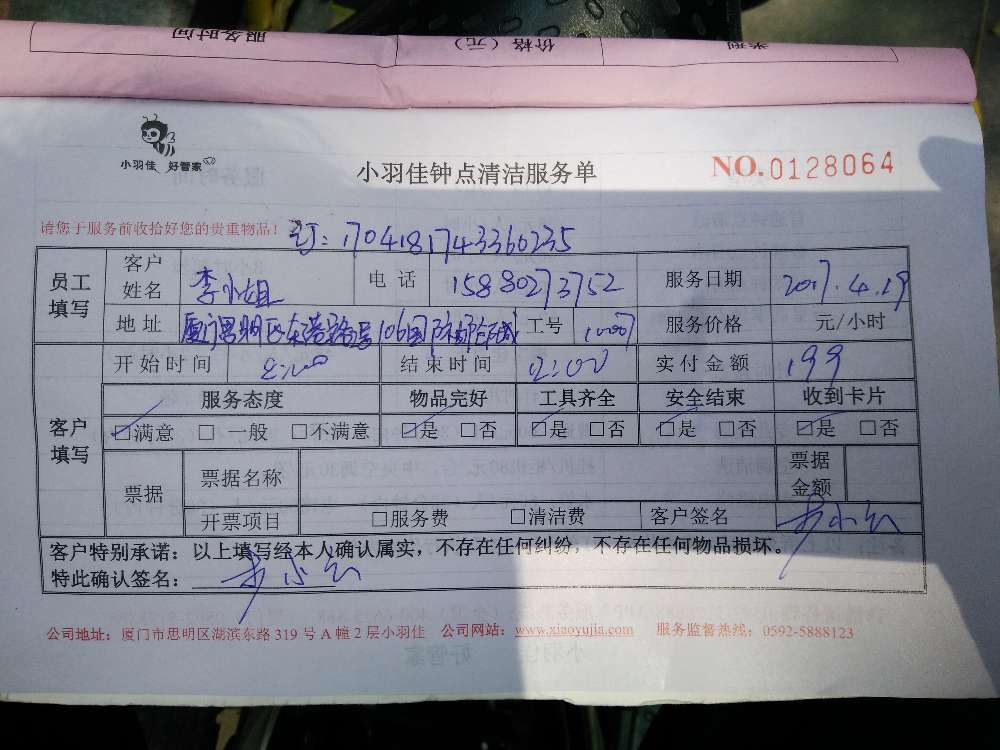 服务时间 价格（元） 类型
小羽佳 好管家
小羽佳钟点清洁服务单
NO.0128064
请您于服务前收拾好您的贵重物品！ 订：1704181743360235
员工填写 客户姓名 李小姐 电话 15880273752 服务日期 2017.4.19
地址 厦门思明区 106 工号 服务价格 元/小时
开始时间 8:00 结束时间 12:00 实付金额 199
客户填写 服务态度 物品完好 工具齐全 安全结束 收到卡片
☑满意 □一般 □不满意 ☑是 □否 ☑是 □否 ☑是 □否 ☑是 □否
票据 票据名称 票据金额
开票项目 □服务费 □清洁费 客户签名
客户特别承诺：以上填写经本人确认属实，不存在任何纠纷，不存在任何物品损坏。
特此确认签名：
公司地址：厦门市思明区湖滨东路 319 号 A 幢 2 层小羽佳 公司网站：www.xiaoyujia.com 服务监督热线：0592-5888123